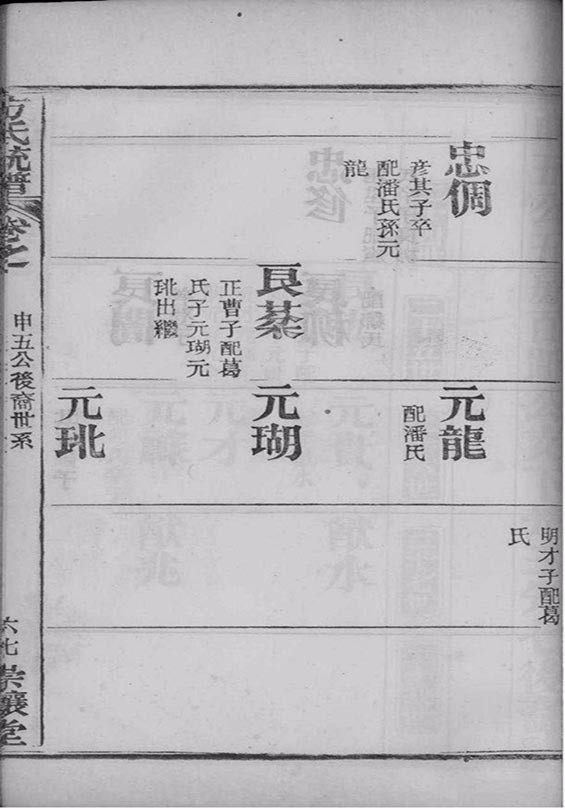 明才子配葛
氏
忠倜
彦其子卒
配潘氏孫元
龍
元龍
配潘氏
良
正曹子配葛
氏子元瑚元
玭出繼
元瑚
元玭
方氏統譜
卷之
申五公後裔世系
六七
崇讓堂